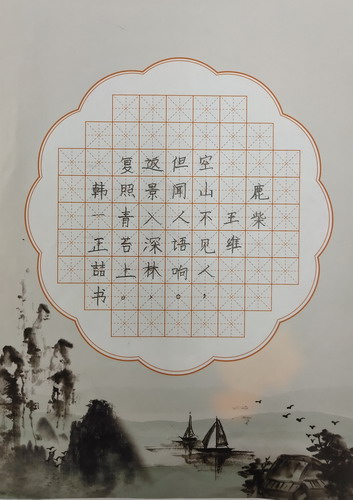 鹿柴
王维
空山不见人，
但闻人语响。
返景入深林，
复照青苔上。
韩一正喆书